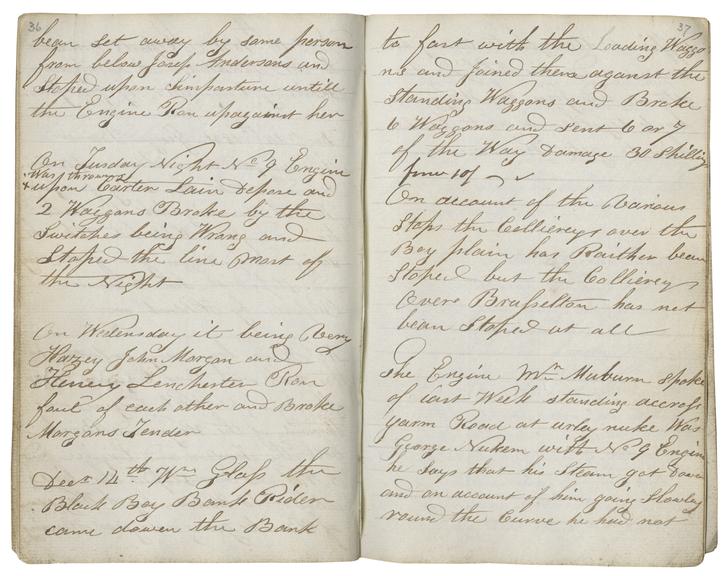 36
bean set away by some person
from below Josep Andersons and
Stoped upon Simpasture untill
the Engine Ran upagainst her
On Tusday Night No 9 Engine
+ Was thrown
upon Carter Lain Depose and
2 Waggons Broke by the
Switches being Wrang and
Stoped the line most of
the Night
On Wedensday it being Very
Hazey John Morgan and
Henery Lenchester Ran
foul of each other and Broke
Morgans Tender
Decr 14th Wm Glass the
Black Boy Bank Rider
came dowen the Bank
37
to fast with the Loading Waggo
ns and Joined them against the
Standing Waggons and Broke
6 Waggons and sent 6 or 7
of the Way Damage 30 Shilling
On account of the Various
Stops the Colliereys over the
Boy plain has Raither bean
Stoped but the Collierey s
Overe Brasselton has not
bean Stoped at all
The Engine Mr Maburn Spoke
of Last Week standing accross
yarm Road at urley nuke Was
George Nukem with No 9 Engine
he Says that his Steam got Down
and on account of him going Slowley
round the Curve he had not